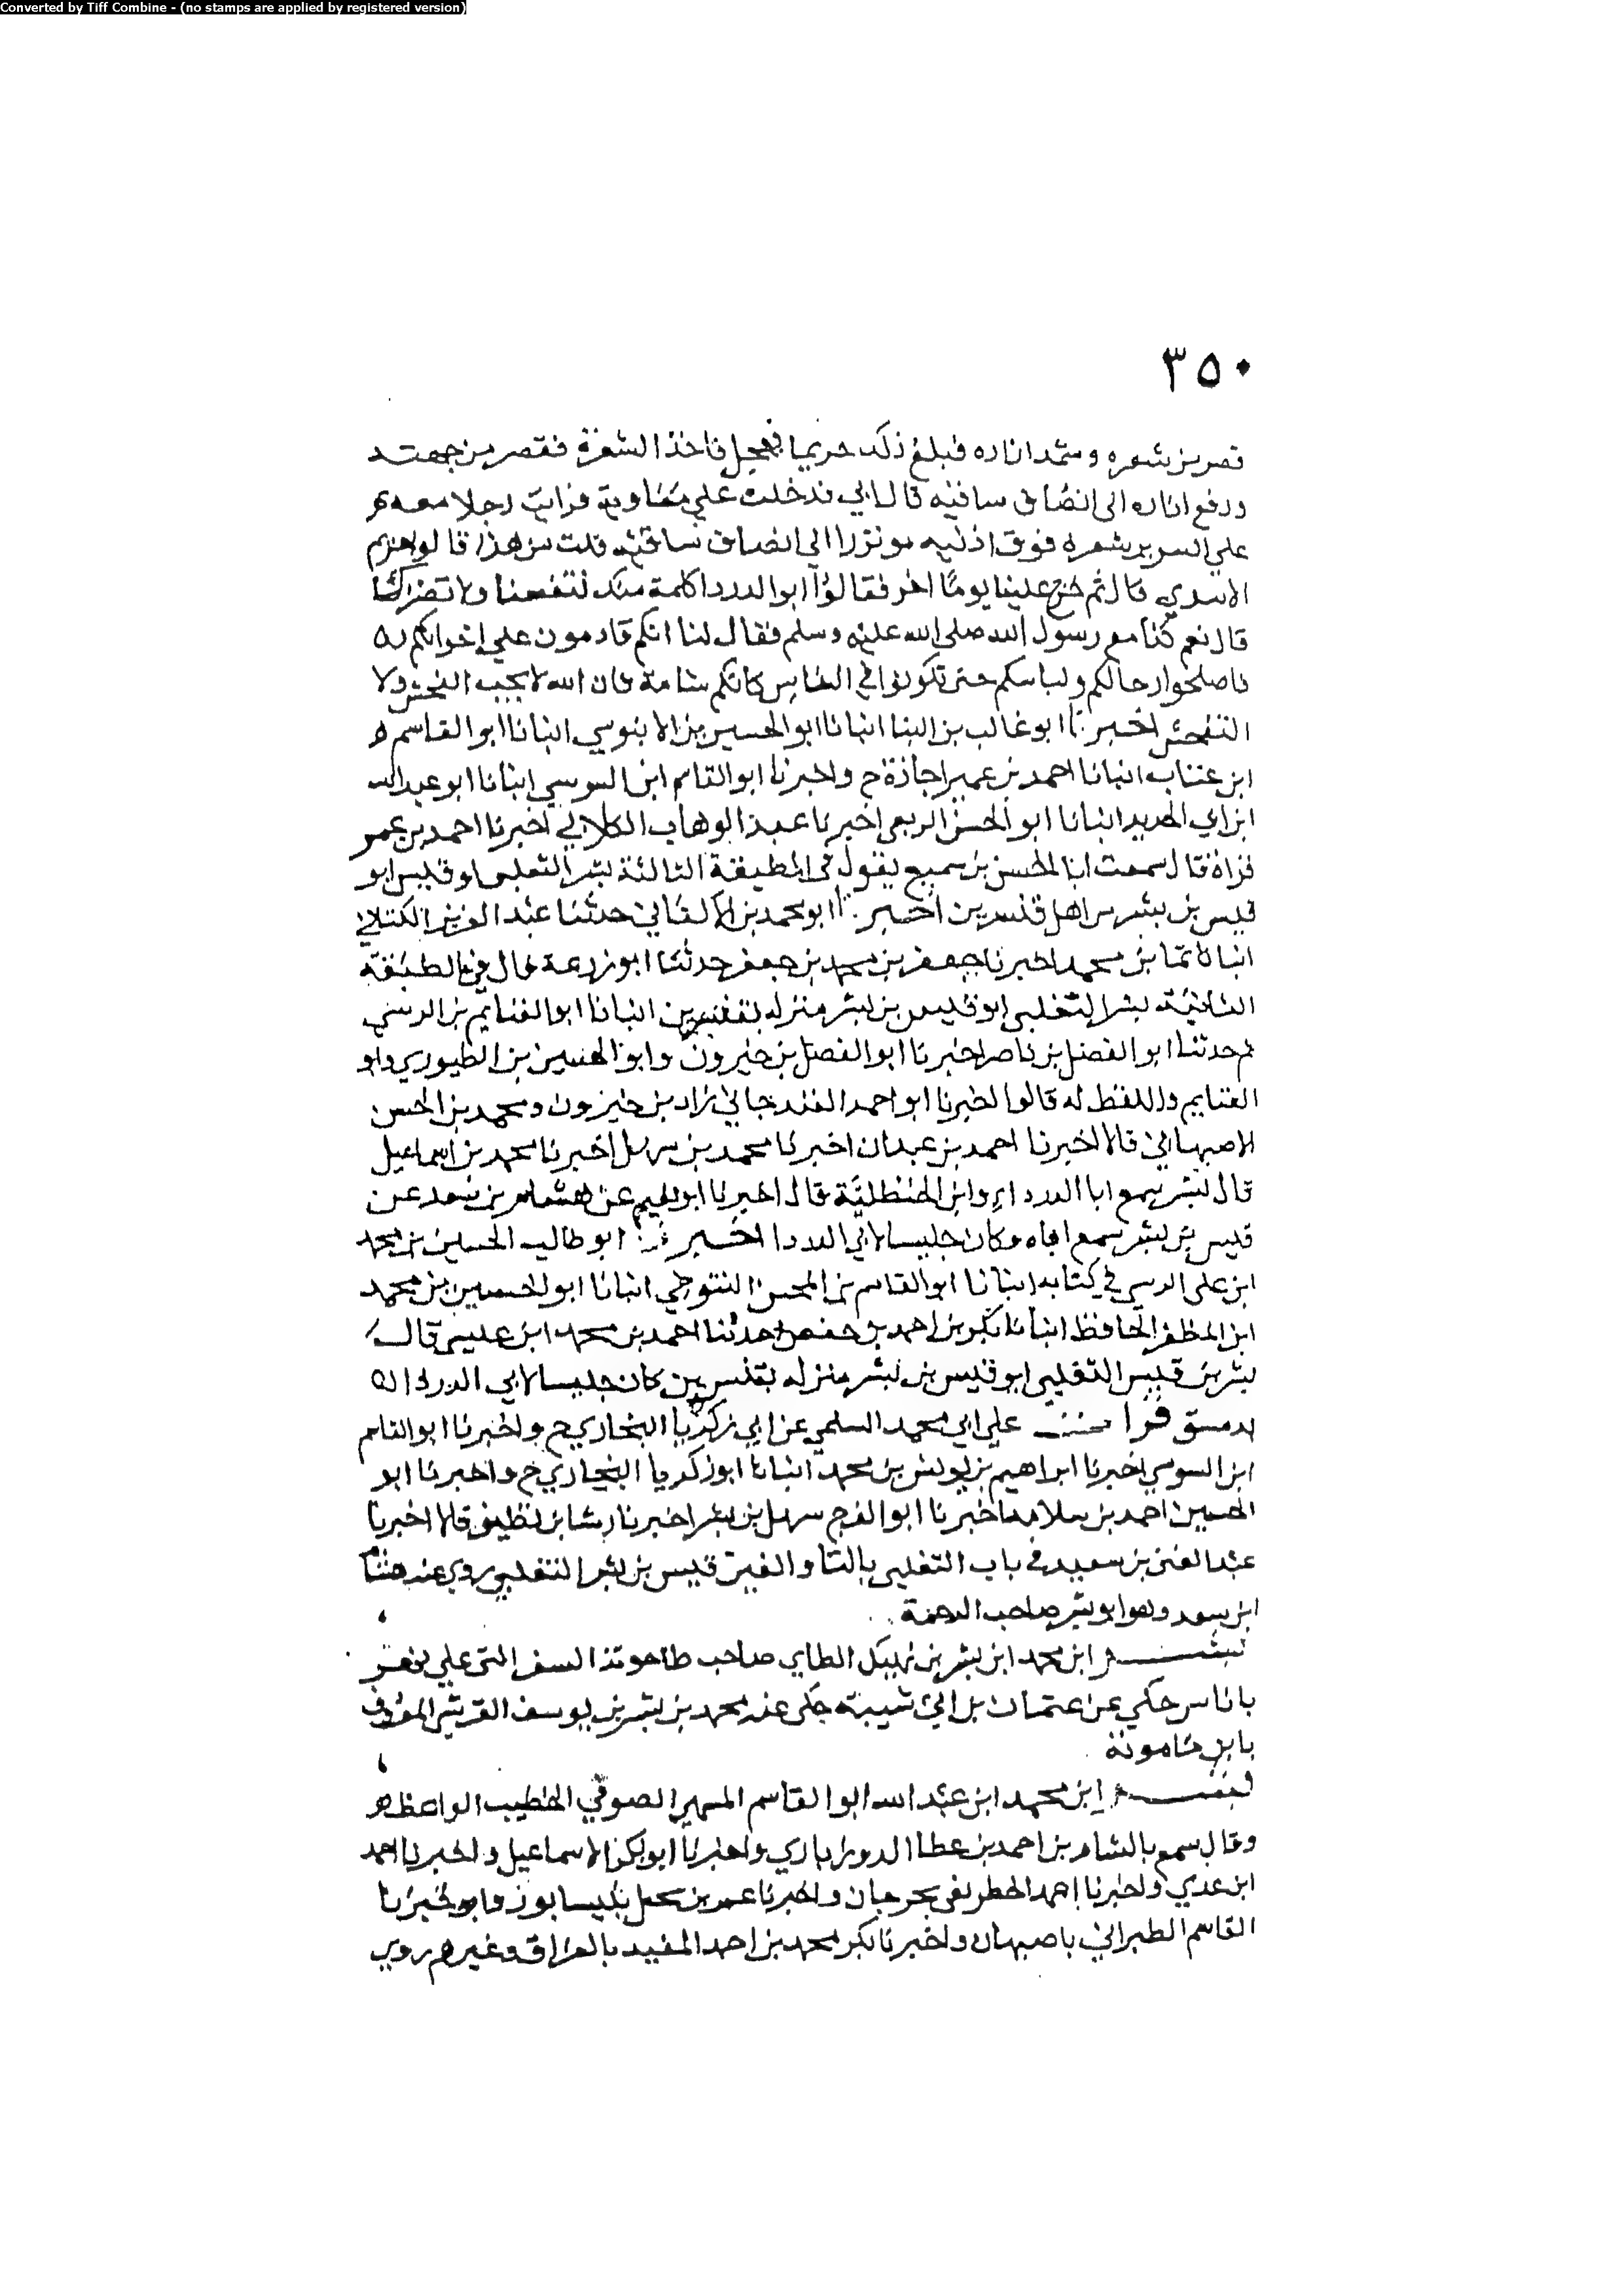 Converted by Tiff Combine - (no stamps are applied by registered version)
٣٥٠
قصر من شعره وشمر ازاره فبلغ ذلك خريما فعجل فاخذ الشفرة فقصر من جمته
ورفع ازاره الى انصاف ساقيه قال ابي فدخلت علي معاوية فرايت رجلا معه
علي السرير شعره فوق اذنيه موتزرا الى انصاف ساقيه قلت من هذا قالوا خريم
الاسدي قال ثم خرج علينا يوما اخر فقالوا ابو الدردا كلمة منك تنفعنا ولا تضرك
قال نعم كنا مع رسول الله صلى الله عليه وسلم فقال لنا انكم قادمون علي اخوانكم
فاصلحوا رحالكم ولباسكم حتى تكونوا في الناس كانكم شامة فان الله لا يحب الفحش ولا
التفحش اخبرنا ابو غالب بن البنا انبانا ابو الحسين بن الابنوسي انبانا ابو القاسم
ابن عتاب انبانا احمد بن عمير اجازة ح واخبرنا ابو القاسم ابن السوسي انبانا ابو عبد الله
ابن ابي الحديد انبانا ابو الحسن الربعي اخبرنا عبد الوهاب الكلابي اخبرنا احمد بن عمير
قراة قال سمعت ابا الحسن بن سميع يقول في الطبقة الثالثة بشر التغلبي او قيس ابو
قيس بن بشر من اهل قنسرين اخبرنا ابو محمد بن الاكفاني حدثنا عبد العزيز الكتاني
انبانا تمام بن محمد اخبرنا جعفر بن محمد بن جعفر حدثنا ابو زرعة قال في الطبقة
الثانية بشر التغلبي ابو قيس بن بشر منزله بقنسرين انبانا ابو الغنايم بن النرسي
ثم حدثنا ابو الفضل بن ناصر اخبرنا ابو الفضل بن خيرون وابو الحسين بن الطيوري وابو
الغنايم واللفظ له قالوا اخبرنا ابو احمد الغندجاني زاد بن خيرون ومحمد بن الحسن
الاصبهاني قالا اخبرنا احمد بن عبدان اخبرنا محمد بن سهل اخبرنا محمد بن اسماعيل
قال بشر سمع ابا الدرداء وابن الحنظلية قال اخبرنا ابو نعيم عن هشام بن سعد عن
قيس بن بشر سمع اباه وكان جليسا لابي الدردا اخبرنا ابو طالب الحسين بن محمد
ابن علي الرسي في كتابه انبانا ابو القاسم بن المحسن التنوخي انبانا ابو الحسين بن محمد
ابن المظفر الحافظ انبانا بكر بن احمد بن حفص حدثنا احمد بن محمد ابن عيسى قال
بشر بن قيس التغلبي ابو قيس بن بشر منزله بقنسرين كان جليسا لابي الدردا
بدمشق قرات علي ابي محمد السلمي عن ابي زكريا البخاري ح واخبرنا ابو القاسم
ابن السوسي اخبرنا ابراهيم بن يونس بن محمد انبانا ابو زكريا البخاري ح واخبرنا ابو
الحسين احمد بن سلامه اخبرنا ابو الفرج سهل بن بشر اخبرنا رشا بن نظيف قالا اخبرنا
عبد الغني بن سعيد في باب التغلبي بالتا والغين قيس بن بشر التغلبي روي عنه هشام
ابن سعد وهو ابو بشر صاحب الرحمة
بشر ابن محمد ابن بشر بن نهيك الطاي صاحب طاحونة السفر التي علي نهر
باناس حكي عن عثمان بن ابي شيبة حكى عنه محمد بن بشر بن يوسف القرشي المعروف
بابن مامونة
بشر ابن محمد ابن عبد الله ابو القاسم المهير الصوفي الخطيب الواعظ
وقال سمع بالشام بن احمد بن عطا الروذباري واخبرنا ابو بكر الاسماعيل واخبرنا احمد
ابن عدي واخبرنا احمد الغطريفي بجرجان واخبرنا عمر بن نيسابور واخبرنا
القاسم الطبراني باصبهان واخبرنا بكر محمد بن احمد المفيد بالعراق وغيرهم روي